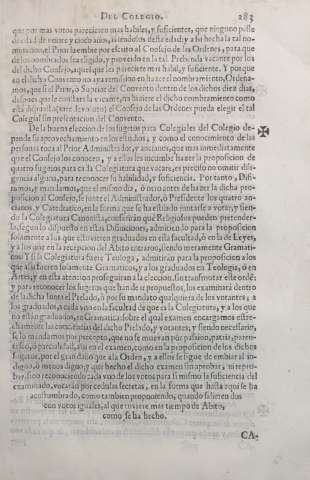 DEL COLEGIO. 283
que por mas votos parecieren mas habiles, y suficientes, que ninguno passe
de edad de veinte y cinco años, siendo de esta edad; y assi hecho la tal no-
minacion, el Prior la embie por escrito al Consejo de las Ordenes, para que
de los nombrados sea elegido, y proveido en la tal Prebenda vacante por los
del dicho Consejo, aquel que les pareciere mas habil, y suficiente. Y porque
en el dicho Convento no aya remission en hazer el nombramiento, Ordena-
mos, que si el Prior, ò Suprior del Convento dentro de los dichos diez dias,
despues que le constare la vacante, no hiziere el dicho nombramiento como
està dispuesto, el Consejo de las Ordenes pueda elegir el tal
Colegial sin presentacion del Convento.
De la buena eleccion de los sugetos para Colegiales del Colegio de-
pende su aprovechamiento en los estudios; y como el conocimiento de las
personas toca al Prior Administrador, y ancianos, que mas inmediatamente
que el Consejo los conocen, y à ellos les incumbe hazer la proposicion de
quatro sugetos para cada Colegiatura que vacare, es preciso se omitir dili-
gencia alguna, para reconocer su habilidad, y suficiencia. Por tanto, Difi-
nimos, y mandamos, que el mismo dia, ò otro antes de hazer la dicha pro-
posicion al Consejo, se junte el Administrador, ò Presidente los quatro an-
cianos, y Catedratico, en la forma que se ha estilado juntarse à votar, y sien-
do la Colegiatura Canonista, confieran què Religiosos pueden pretender-
la, segun lo dispuesto en estas Difiniciones, admitiendo para la proposicion
solamente à los que estuvieren graduados en esta facultad, ò en la de Leyes,
y à los que en la recepcion del Abito entraron, siendo meramente Gramati-
cos: Y si la Colegiatura fuere Teologa, admitiràn para la proposicion à los
que assi fueren solamente Gramaticos, y à los graduados en Teologia, ò en
Artes; y en esta atencion proseguiràn à la eleccion, se transfiriendo este orde;
y para reconocer los sugetos que han de ir propuestos, los examinarà dentro
de la dicha Junta el Prelado, ò por su mandato qualquiera de los votantes, à
los graduados, à cada vno en la facultad de que es la Colegiatura, y à los que
no estàn graduados, en Gramatica, sobre el qual examen encargamos estre-
chamente las conciencias del dicho Prelado, y votantes, y siendo necessario,
se lo mandamos por precepto, que no se muevan por passion, patria, paren-
tesco, ò parcialidad, assi en el examen, como en la proposicion de los dichos
sugetos, por el gran daño que à la Orden, y à ellos se sigue de embiar al in-
digno, ò menos digno; y que hecho el dicho examen sin aprobar, ni repro-
bar, sino reconociendo cada vno de los votos para sì mismo la suficiencia del
examinado, votaràn por cedulas secretas, en la forma que hasta aqui se ha
acostumbrado, como tambien proponiendo, quando salieren dos
con votos iguales, al que tuviere mas tiempo de Abito,
como se ha hecho.
CA-